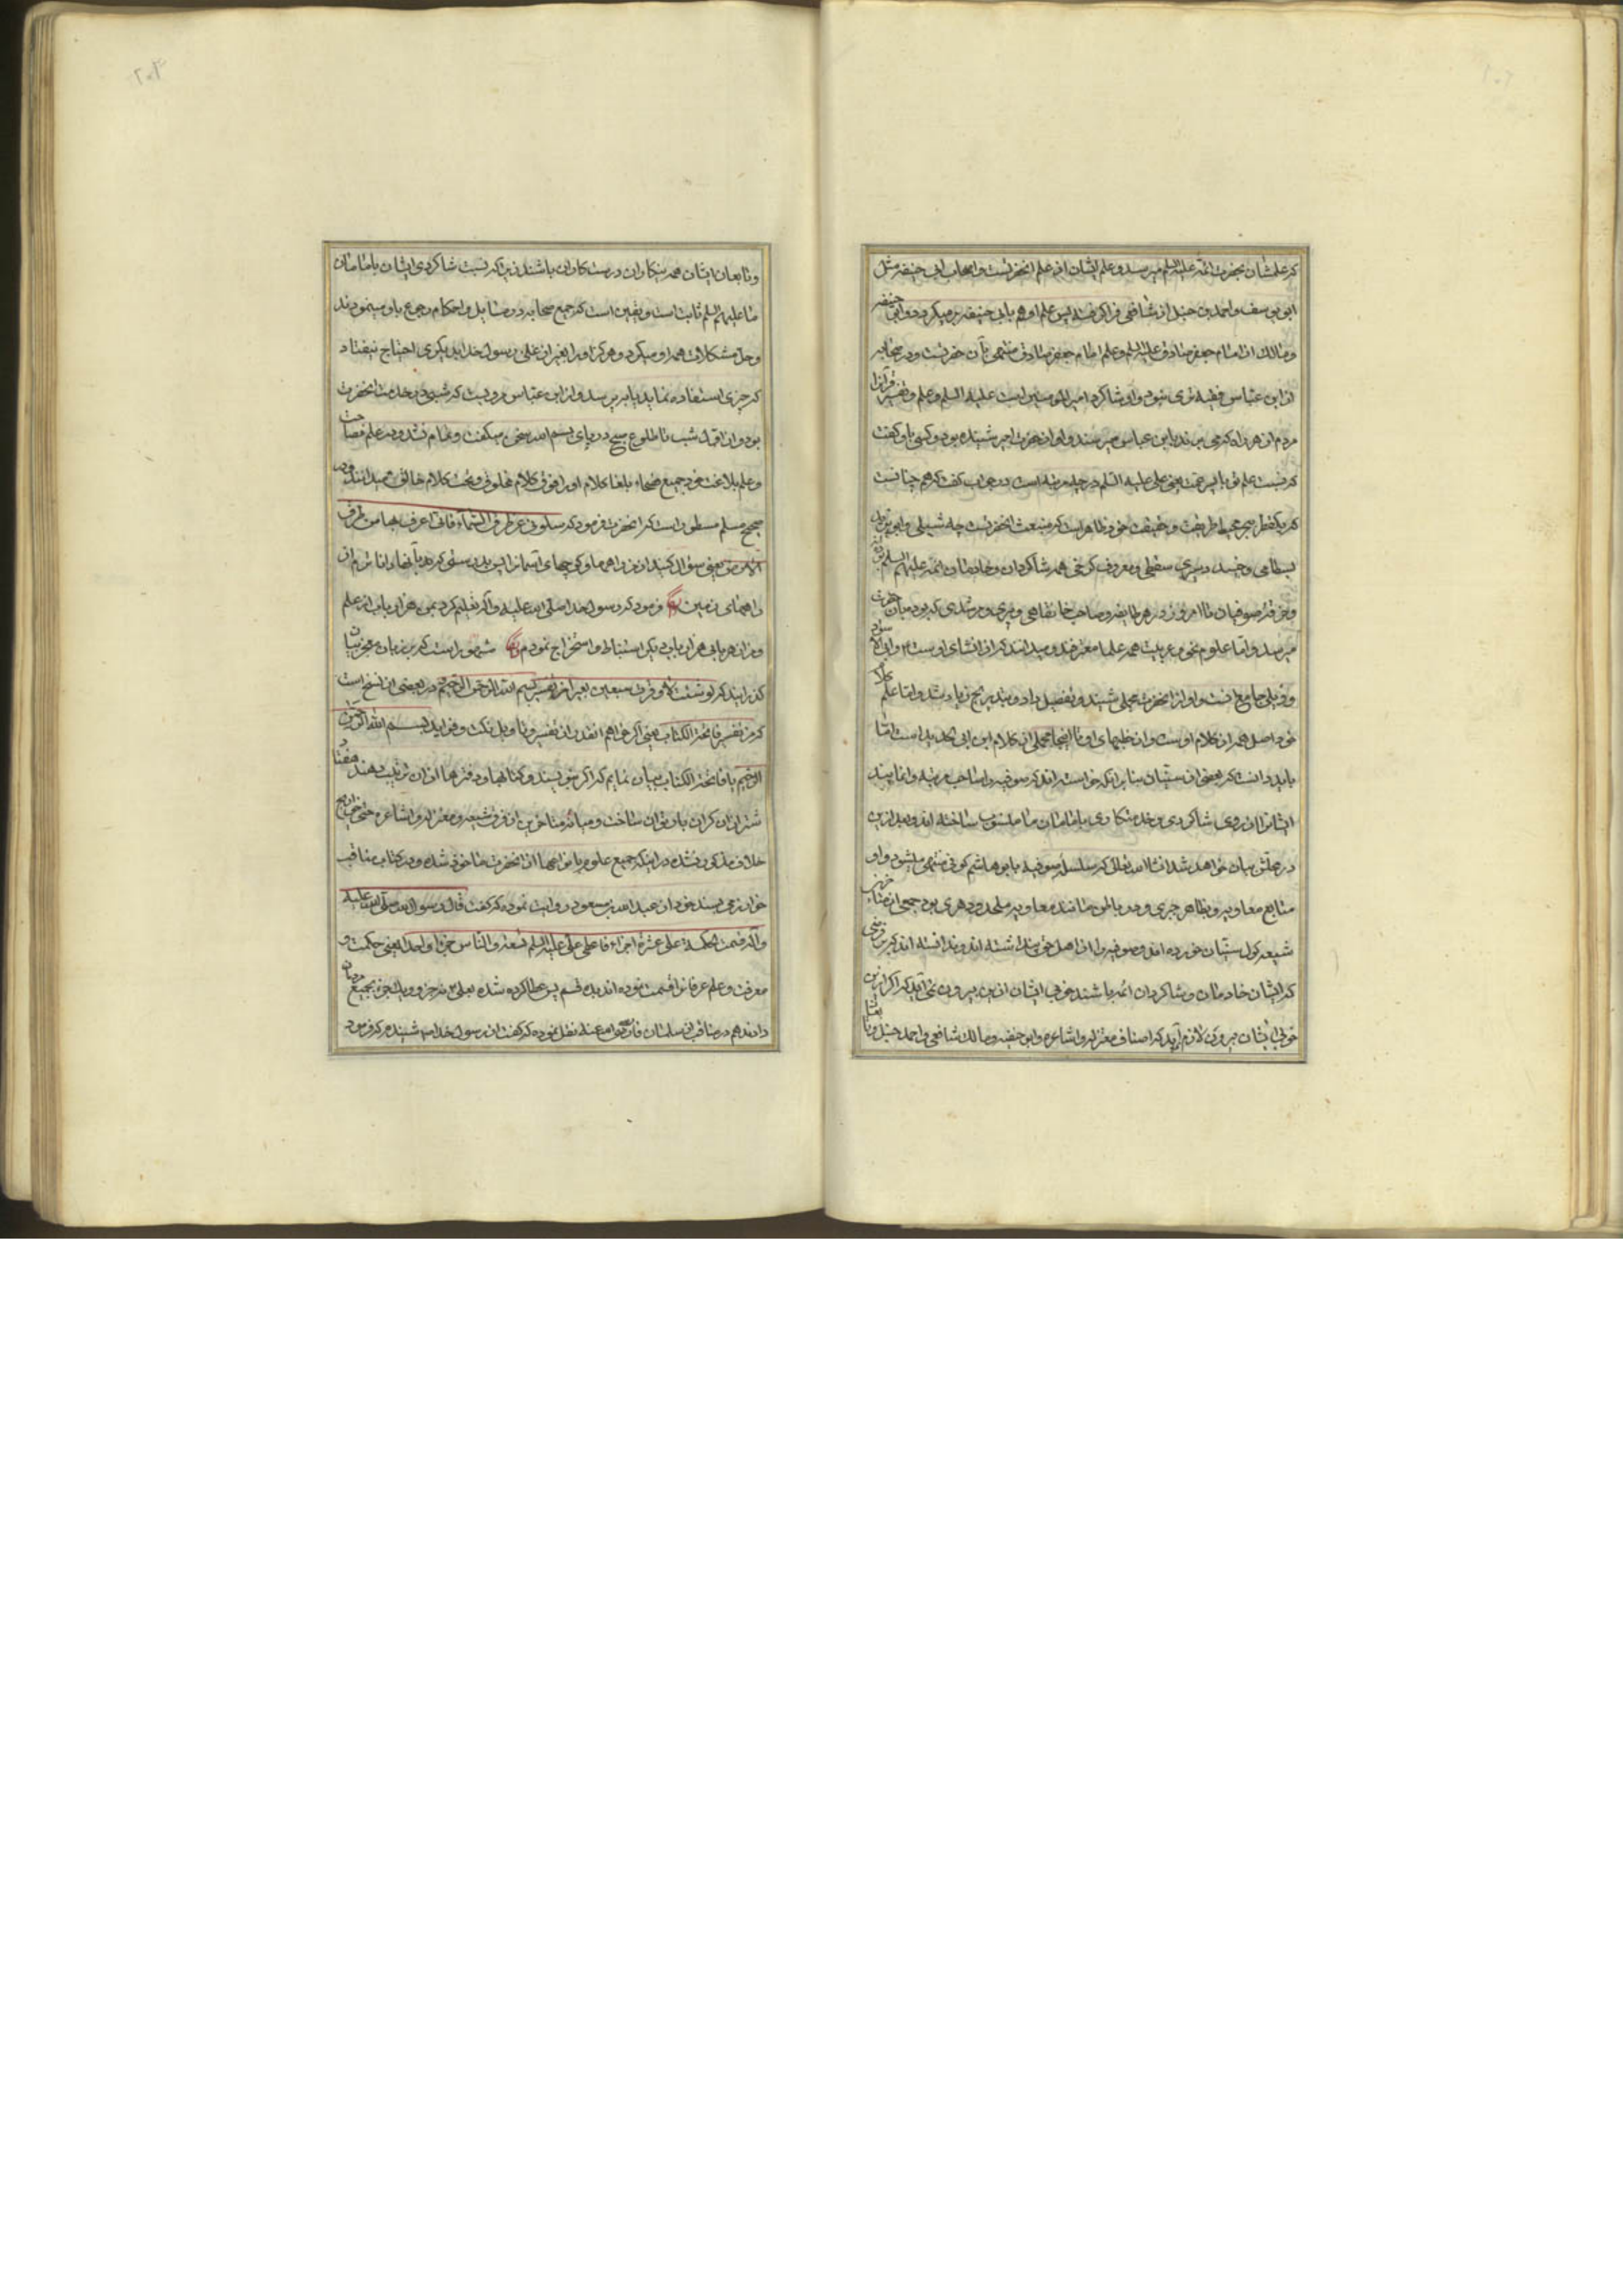 که علمشان بحضرت ائمه علیهم السلم میرسد و علم ایشان از علم انحضرتست و اصحاب ابی حنیفه مثل
ابی یوسف و احمد بن حنبل از شافعی فرا گرفته پس علم او هم بابی حنیفه بر میگردد و ابی حنیفه
و مالک از امام جعفر صادق علیه السلم و علم امام جعفر صادق منتهی بآن حضرتست و در صحابه
از ابن عباس فقیه تری نبود و او شاگرد امیر المومنین است علیه السلم و علم و تفسیر قرآنرا
مردم از هر راه که می برند بابن عباس میرسند و او از حضرت امیر شنیده بود و کسی باو گفت
که نسبت علم تو با پسر عمت یعنی علی علیه السلم در چه مرتبه است در جواب گفت که هم چنانست
که یکقطره بحر محیط اما طریقت و حقیقت خود ظاهر است که منبعث انحضرتست چه شبلی و ابو یزید
بسطامی و جنید و سری سقطی و معروف کرخی همه شاگردان و خادمان ائمه علیهم السلم بوده
و خرقه صوفیان تا امروز در هر طایفه و صاحب خانقاهی و پیری و مرشدی که بود میان حضرت
میرسد و اما علوم نحو و عربیت همه علما معترفند و میدانند که از انشای اوست و ابی الاسود
و وئلی جامع انست و او از انحضرت مجملی شنید و تفصیل داد و بتدریج زیاد شد و اما علم کلام
خود اصل همه از کلام اوست و از خطبهای او تا اینجا مجملی از کلام ابن ابی الحدید است اما
باید دانست که بعضی از سنیان بنا برانکه خواسته اند که صوفیه را صاحب مرتبه وانمایند
ایشانرا از روی شاگردی و خدمتکاری بامامان ما منسوب ساخته اند و بعد ازین
در محلش بیان خواهد شد انشا الله تعالی که سلسله صوفیه بابو هاشم کوفی منتهی میشود و او
متابع معاویه و بظاهر جبری و در باطن مانند معاویه ملحد و دهری بود جمعی از متاخرین
شیعه گول سنیان خورده اند و صوفیه را از اهل حق پنداشته اند و ندانسته اند که بر فرضی
که ایشان خادمان و شاگردان ائمه باشند خوبی ایشان ازین بیرون نمی آید که اگر ازین
خوبی ایشان بیرون لازم آید که اصناف معتزله و اشاعره و ابو حنیفه و مالک و شافعی و احمد حنبل
و تابعان ایشان همه نیکاران و رستگاران باشند زیرا که نسبت شاگردی ایشان بامامان
ما علیهم السلم ثابت است و یقین است که جمیع صحابه در مسایل و احکام رجوع باو مینمودند
و حل مشکلات همه او میکرد و هرگز او را بغیر از علی و رسول خدا بدیگری احتیاج نیفتاد
که چیزی استفاده نماید یا بپرسد و از ابن عباس مرویست که شبی در خدمت انحضرت
بود و از اول شب تا طلوع صبح در بای بسم الله سخن میگفت و تمام نشد و در علم فصاحت
و علم بلاغت خود جمیع فصحاء و بلغا کلام او را فوق کلام مخلوق و تحت کلام خالق میدانند و در
صحیح مسلم مسطور است که انحضرت فرمود که سلونی عن طرق السماء فانی اعرف بها من طرق
الارض یعنی سوال کنید از من راهها و کوچهای آسمانرا
راههای زمین و فرمود که رسول خدا صلی الله علیه و آله تعلیم کرد بمن هزار باب از علم
و من از هر بابی هزار باب دیگر استنباط و استخراج نمودم مشهور است که بر زبان معجز بیان
گذرانید که لو شئت لاوقرت سبعین بعیرا من تفسیر بسم الله الرحمن الرحیم و در بعضی از نسخ است
که من تفسیر فاتحة الکتاب یعنی اگر خواهم انقدر از تفسیر و تاویل و نکت و فواید بسم الله الرحمن
الرحیم یا فاتحة الکتاب بیان نمایم که اگر بنویسند و کتابها و دفترها از ان ترتیب دهند هفتاد
شتر از ان گران بار توان ساخت و میانه متاخرین از فرق شیعه و معتزله و اشاعره حتی خوارج
خلاف مذکور نشده در اینکه جمیع علوم بانواعها از انحضرت ماخوذ شده و در کتاب مناقب
خوارزمی بسند خود از عبد الله بن مسعود روایت نموده که گفت قال رسول الله صلی الله علیه
و آله قسمت الحکمة علی عشرة اجزاء فاعطی علی علیه السلم تسعة و الناس جزءا واحدا یعنی حکمت و
معرفت و علم عرفانرا قسمت نموده اند بده قسم پس عطا کرده شده بعلی نه جزو و یک جزء بجمیع مردمان
دادند هم در مناقب از سلمان فارسی رضی الله عنه نقل نموده که گفت از رسول خدا شنیدم که فرمود